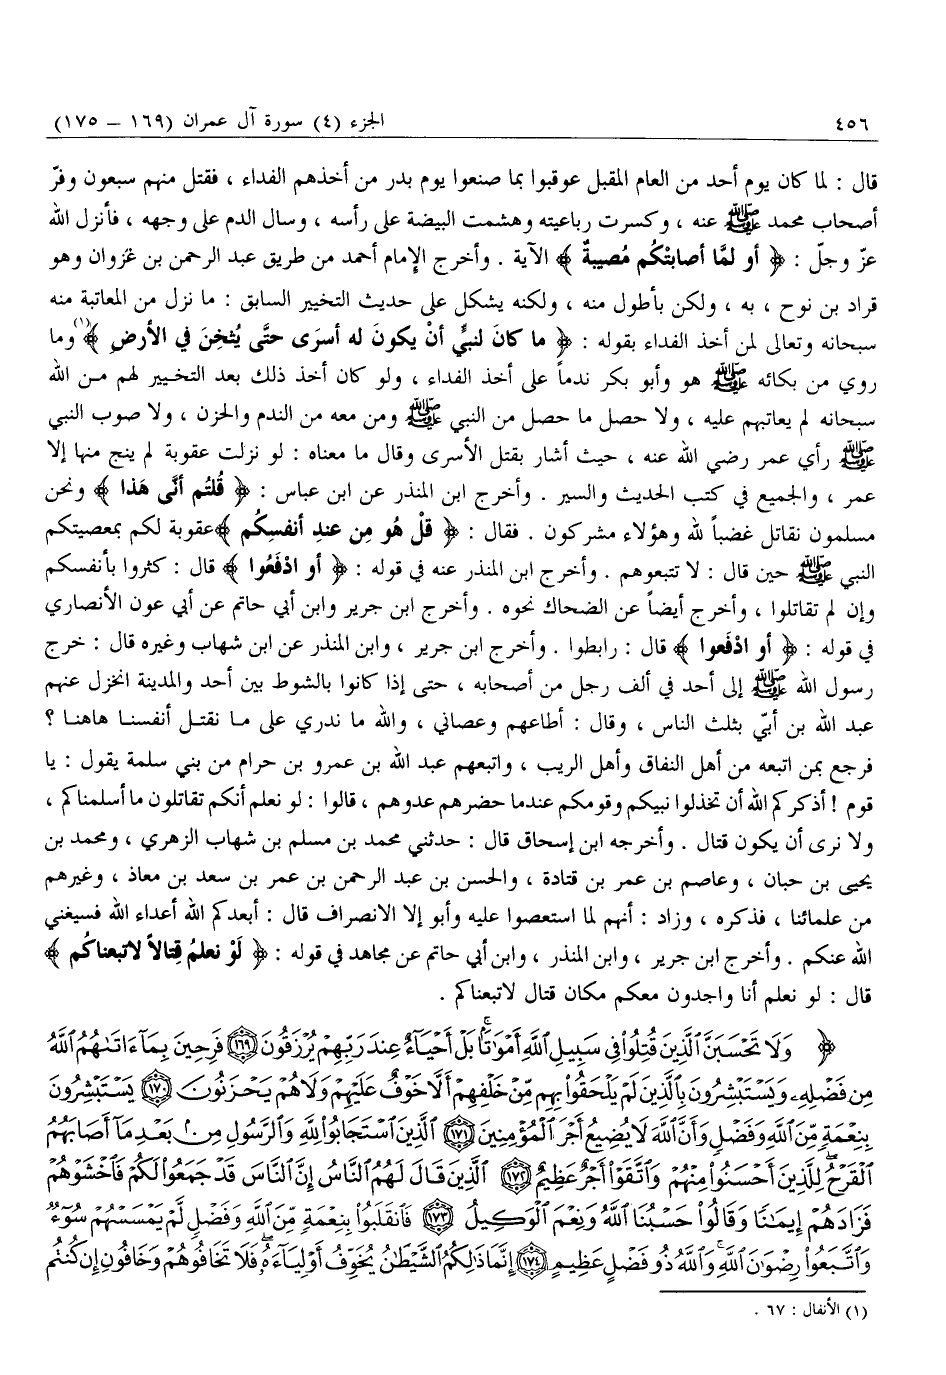 ٤٥٦ الجزء (٤) سورة آل عمران (١٦٩ – ١٧٥)
قال : لما كان يوم أحد من العام المقبل عوقبوا بما صنعوا يوم بدر من أخذهم الفداء ، فقتل منهم سبعون وفرّ
أصحاب محمد ﷺ عنه ، وكسرت رباعيته وهشمت البيضة على رأسه ، وسال الدم على وجهه ، فأنزل الله
عزّ وجلّ : ﴿ أو لمَّا أصابتْكُم مُصيبةٌ ﴾ الآية . وأخرج الإمام أحمد من طريق عبد الرحمن بن غزوان وهو
قراد بن نوح ، به ، ولكن بأطول منه ، ولكنه يشكل على حديث التخيير السابق : ما نزل من المعاتبة منه
سبحانه وتعالى لمن أخذ الفداء بقوله : ﴿ ما كانَ لنبيٍّ أنْ يكونَ له أسرَى حتَّى يُثخِنَ في الأرضِ ﴾(١) وما
روي من بكائه ﷺ هو وأبو بكر ندماً على أخذ الفداء ، ولو كان أخذ ذلك بعد التخيير لهم من الله
سبحانه لم يعاتبهم عليه ، ولا حصل ما حصل من النبي ﷺ ومن معه من الندم والحزن ، ولا صوب النبي
ﷺ رأي عمر رضي الله عنه ، حيث أشار بقتل الأسرى وقال ما معناه : لو نزلت عقوبة لم ينج منها إلا
عمر ، والجميع في كتب الحديث والسير . وأخرج ابن المنذر عن ابن عباس : ﴿ قُلتُم أنَّى هَذا ﴾ ونحن
مسلمون نقاتل غضباً لله وهؤلاء مشركون . فقال : ﴿ قلْ هُو مِن عندِ أنفسِكُم ﴾ عقوبة لكم بمعصيتكم
النبي ﷺ حين قال : لا تتبعوهم . وأخرج ابن المنذر عنه في قوله : ﴿ أو ادْفَعُوا ﴾ قال : كثروا بأنفسكم
وإن لم تقاتلوا ، وأخرج أيضاً عن الضحاك نحوه . وأخرج ابن جرير وابن أبي حاتم عن أبي عون الأنصاري
في قوله : ﴿ أو ادْفَعوا ﴾ قال : رابطوا . وأخرج ابن جرير ، وابن المنذر عن ابن شهاب وغيره قال : خرج
رسول الله ﷺ إلى أحد في ألف رجل من أصحابه ، حتى إذا كانوا بالشوط بين أحد والمدينة انخزل عنهم
عبد الله بن أبيّ بثلث الناس ، وقال : أطاعهم وعصاني ، والله ما ندري على ما نقتل أنفسنا هاهنا ؟
فرجع بمن اتبعه من أهل النفاق وأهل الريب ، واتبعهم عبد الله بن عمرو بن حرام من بني سلمة يقول : يا
قوم ! أذكركم الله أن تخذلوا نبيكم وقومكم عندما حضرهم عدوهم ، قالوا : لو نعلم أنكم تقاتلون ما أسلمناكم ،
ولا نرى أن يكون قتال . وأخرجه ابن إسحاق قال : حدثني محمد بن مسلم بن شهاب الزهري ، ومحمد بن
يحيى بن حبان ، وعاصم بن عمر بن قتادة ، والحسن بن عبد الرحمن بن عمر بن سعد بن معاذ ، وغيرهم
من علمائنا ، فذكره ، وزاد : أنهم لما استعصوا عليه وأبو إلا الانصراف قال : أبعدكم الله أعداء الله فسيغني
الله عنكم . وأخرج ابن جرير ، وابن المنذر ، وابن أبي حاتم عن مجاهد في قوله : ﴿ لَوْ نعلمُ قِتالاً لاتبعناكُم ﴾
قال : لو نعلم أنا واجدون معكم مكان قتال لاتبعناكم .
﴿ وَلَا تَحْسَبَنَّ ٱلَّذِينَ قُتِلُوا۟ فِى سَبِيلِ ٱللَّهِ أَمْوَٰتًۢا ۚ بَلْ أَحْيَآءٌ عِندَ رَبِّهِمْ يُرْزَقُونَ ١٦٩ فَرِحِينَ بِمَآ ءَاتَىٰهُمُ ٱللَّهُ
مِن فَضْلِهِۦ وَيَسْتَبْشِرُونَ بِٱلَّذِينَ لَمْ يَلْحَقُوا۟ بِهِم مِّنْ خَلْفِهِمْ أَلَّا خَوْفٌ عَلَيْهِمْ وَلَا هُمْ يَحْزَنُونَ ١٧٠ يَسْتَبْشِرُونَ
بِنِعْمَةٍ مِّنَ ٱللَّهِ وَفَضْلٍ وَأَنَّ ٱللَّهَ لَا يُضِيعُ أَجْرَ ٱلْمُؤْمِنِينَ ١٧١ ٱلَّذِينَ ٱسْتَجَابُوا۟ لِلَّهِ وَٱلرَّسُولِ مِنۢ بَعْدِ مَآ أَصَابَهُمُ
ٱلْقَرْحُ ۚ لِلَّذِينَ أَحْسَنُوا۟ مِنْهُمْ وَٱتَّقَوْا۟ أَجْرٌ عَظِيمٌ ١٧٢ ٱلَّذِينَ قَالَ لَهُمُ ٱلنَّاسُ إِنَّ ٱلنَّاسَ قَدْ جَمَعُوا۟ لَكُمْ فَٱخْشَوْهُمْ
فَزَادَهُمْ إِيمَٰنًا وَقَالُوا۟ حَسْبُنَا ٱللَّهُ وَنِعْمَ ٱلْوَكِيلُ ١٧٣ فَٱنقَلَبُوا۟ بِنِعْمَةٍ مِّنَ ٱللَّهِ وَفَضْلٍ لَّمْ يَمْسَسْهُمْ سُوٓءٌ
وَٱتَّبَعُوا۟ رِضْوَٰنَ ٱللَّهِ ۗ وَٱللَّهُ ذُو فَضْلٍ عَظِيمٍ ١٧٤ إِنَّمَا ذَٰلِكُمُ ٱلشَّيْطَٰنُ يُخَوِّفُ أَوْلِيَآءَهُۥ فَلَا تَخَافُوهُمْ وَخَافُونِ إِن كُنتُم
(١) الأنفال : ٦٧ .